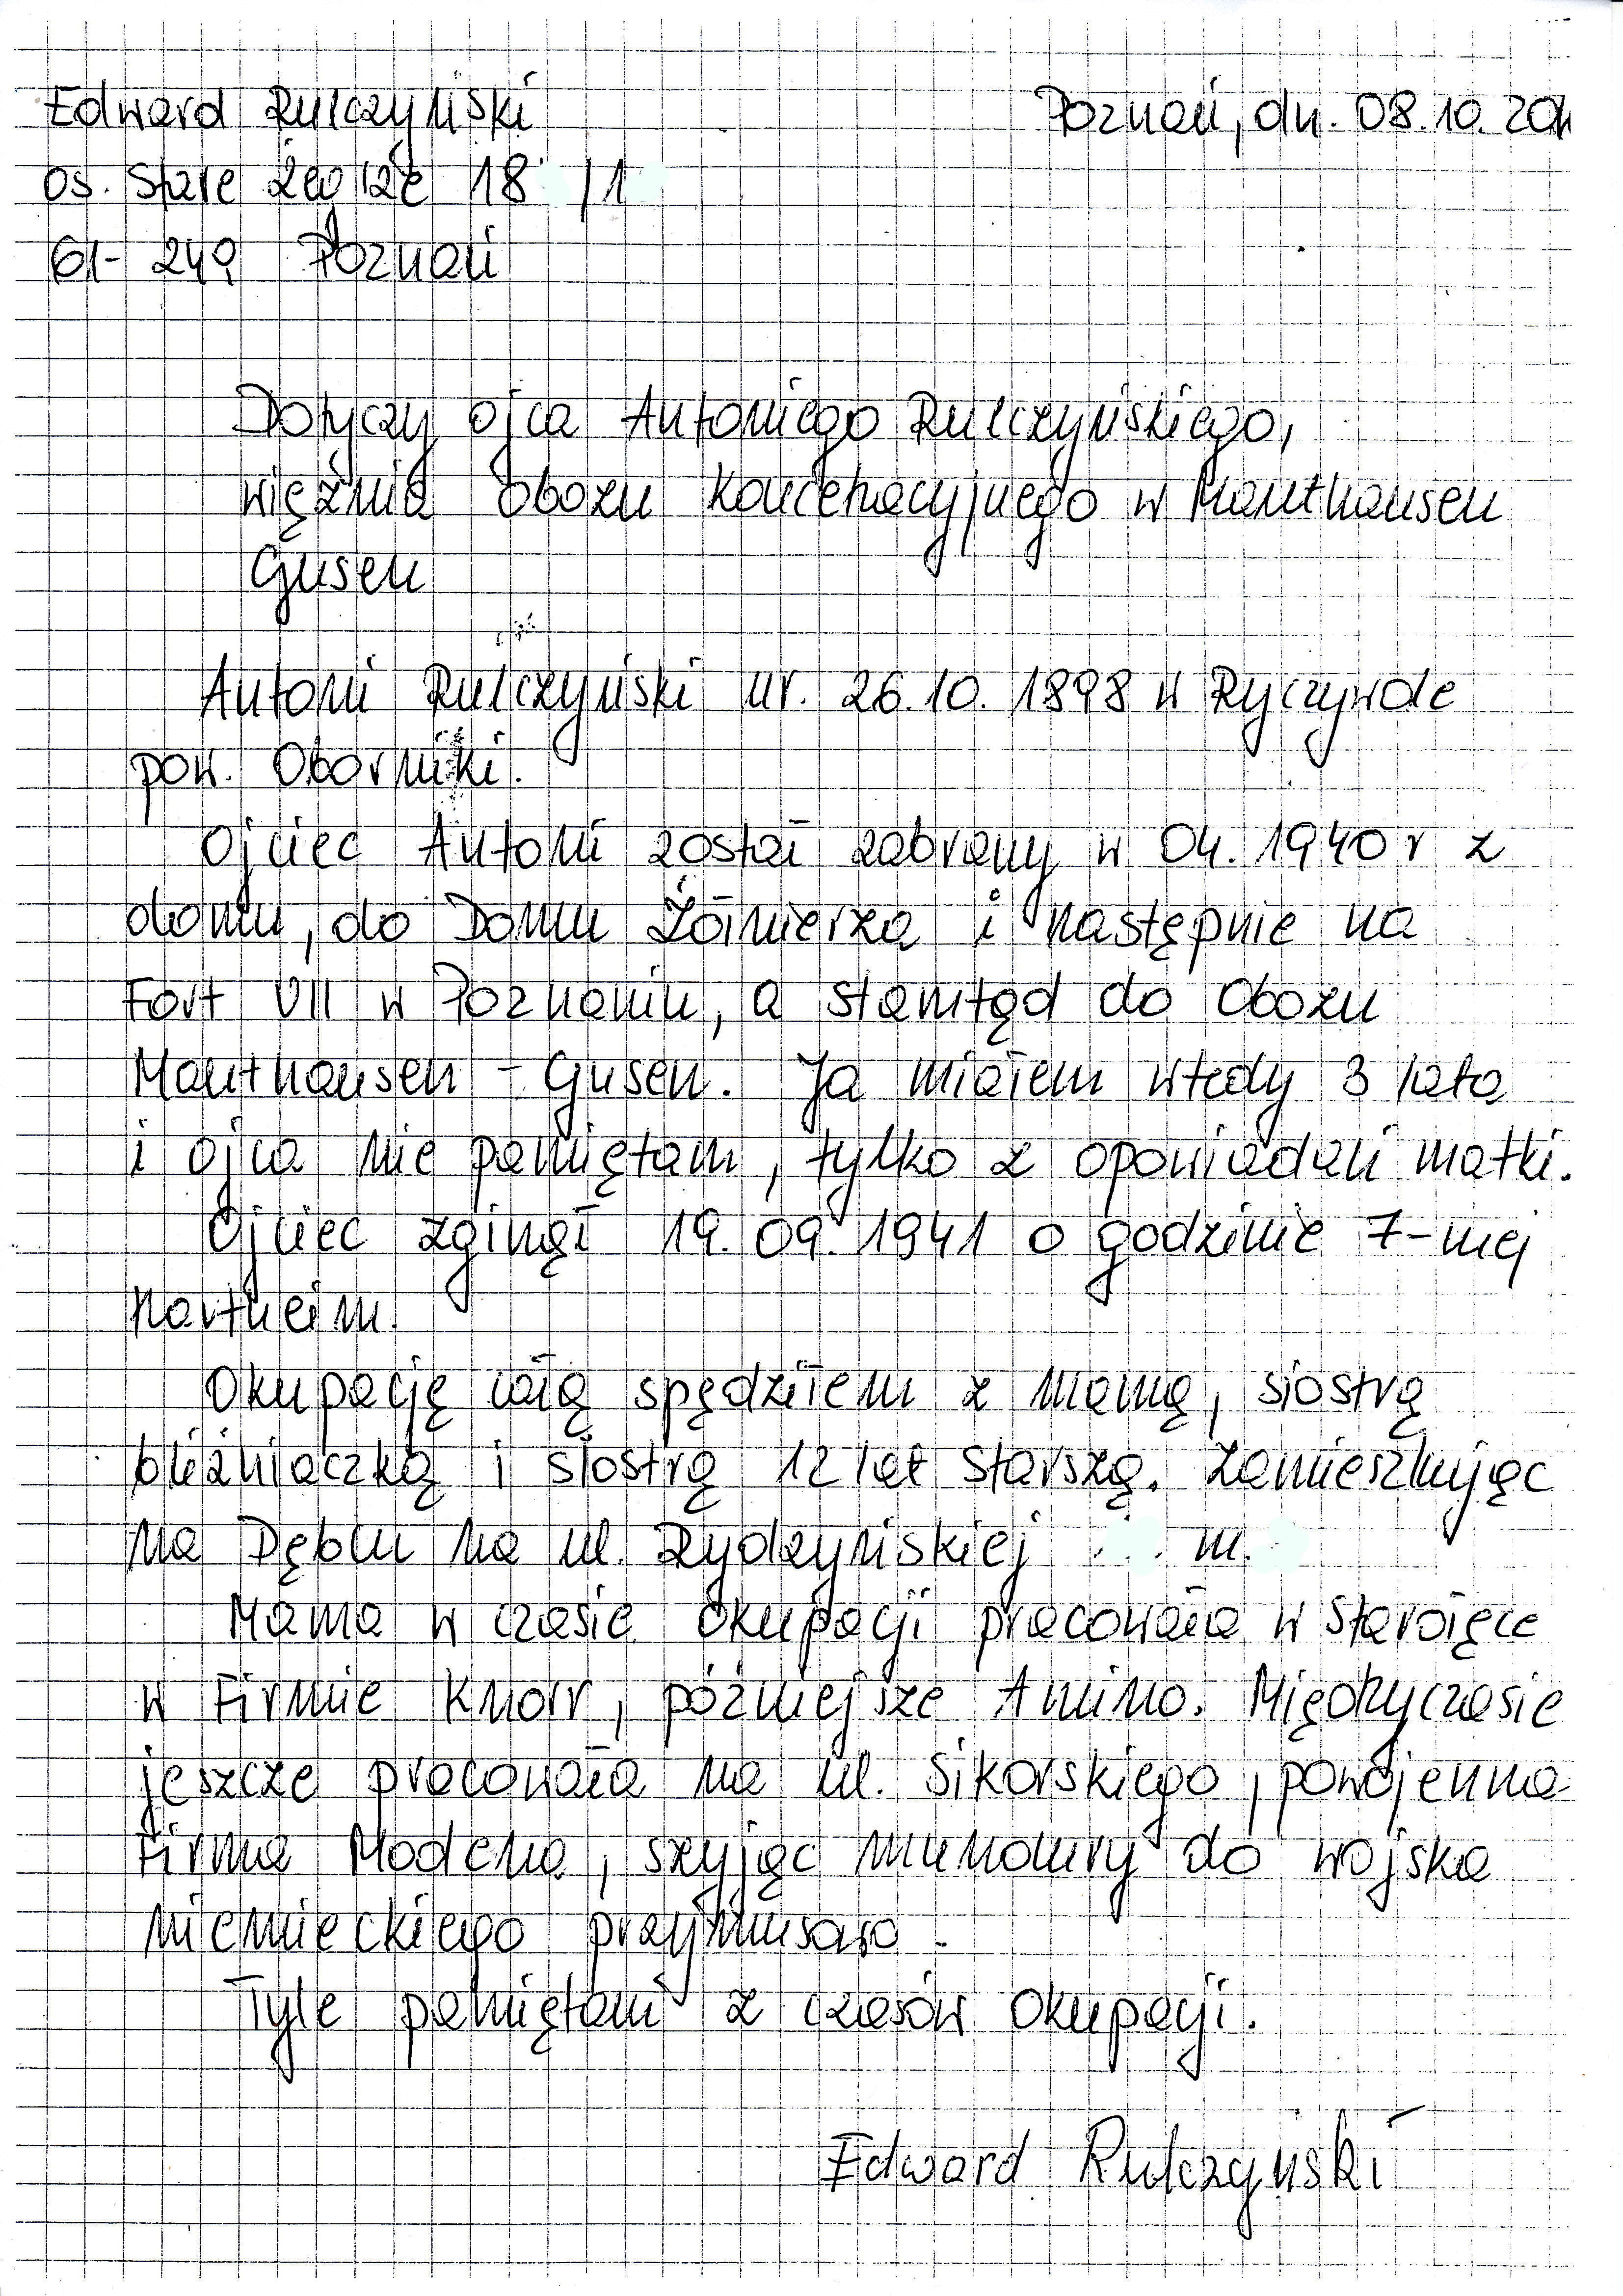 Edward Rulczyński Poznań, dn. 08.10.201
os. Stare Żegrze 18 /1
61-249 Poznań
Dotyczy ojca Antoniego Rulczyńskiego,
więźnia obozu koncetracyjnego w Mauthausen
Gusen
Antoni Rulczyński ur. 26.10.1898 w Ryczywole
pow. Oborniki.
Ojciec Antoni został zabrany w 04.1940 r z
domu, do Domu Żołnierza i następnie na
Fort VII w Poznaniu, a stamtąd do Obozu
Mauthausen - Gusen. Ja miałem wtedy 3 lata
i ojca nie pamiętam, tylko z opowiadań matki.
Ojciec zginął 19.09.1941 o godzinie 7-mej
Hartheim.
Okupację całą spędziłem z mamą, siostrą
bliźniaczką i siostrą 12 lat starszą. Zamieszkując
na Dębcu na ul. Rydzyńskiej m.
Mama w czasie okupacji pracowała w Starołęce
w Firmie Knorr, późniejsze Amino. Międzyczasie
jeszcze pracowała na ul. Sikorskiego, powojenna
Firma Modena, szyjąc mundury do wojska
niemieckiego przymusowo.
Tyle pamiętam z czasów okupacji.
Edward Rulczyński